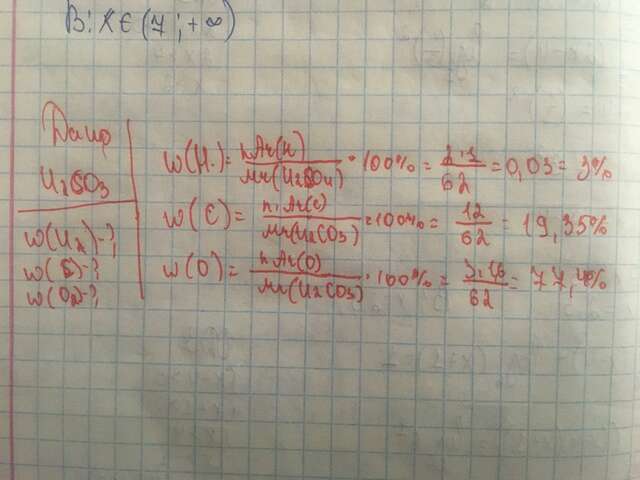 В: x ∈ (7 ; +∞)
Дано
H2CO3
w(H2)-?,
w(C)-?,
w(O2)-?,
w(H.) = nAr(H) / Mr(H2SO4) · 100% = 2·1 / 62 = 0,03 = 3%
w(C) = n.Ar(C) / Mr(H2CO3) · 100% = 12 / 62 = 19,35%
w(O) = n.Ar(O) / Mr(H2CO3) · 100% = 3.16 / 62 = 77,4%